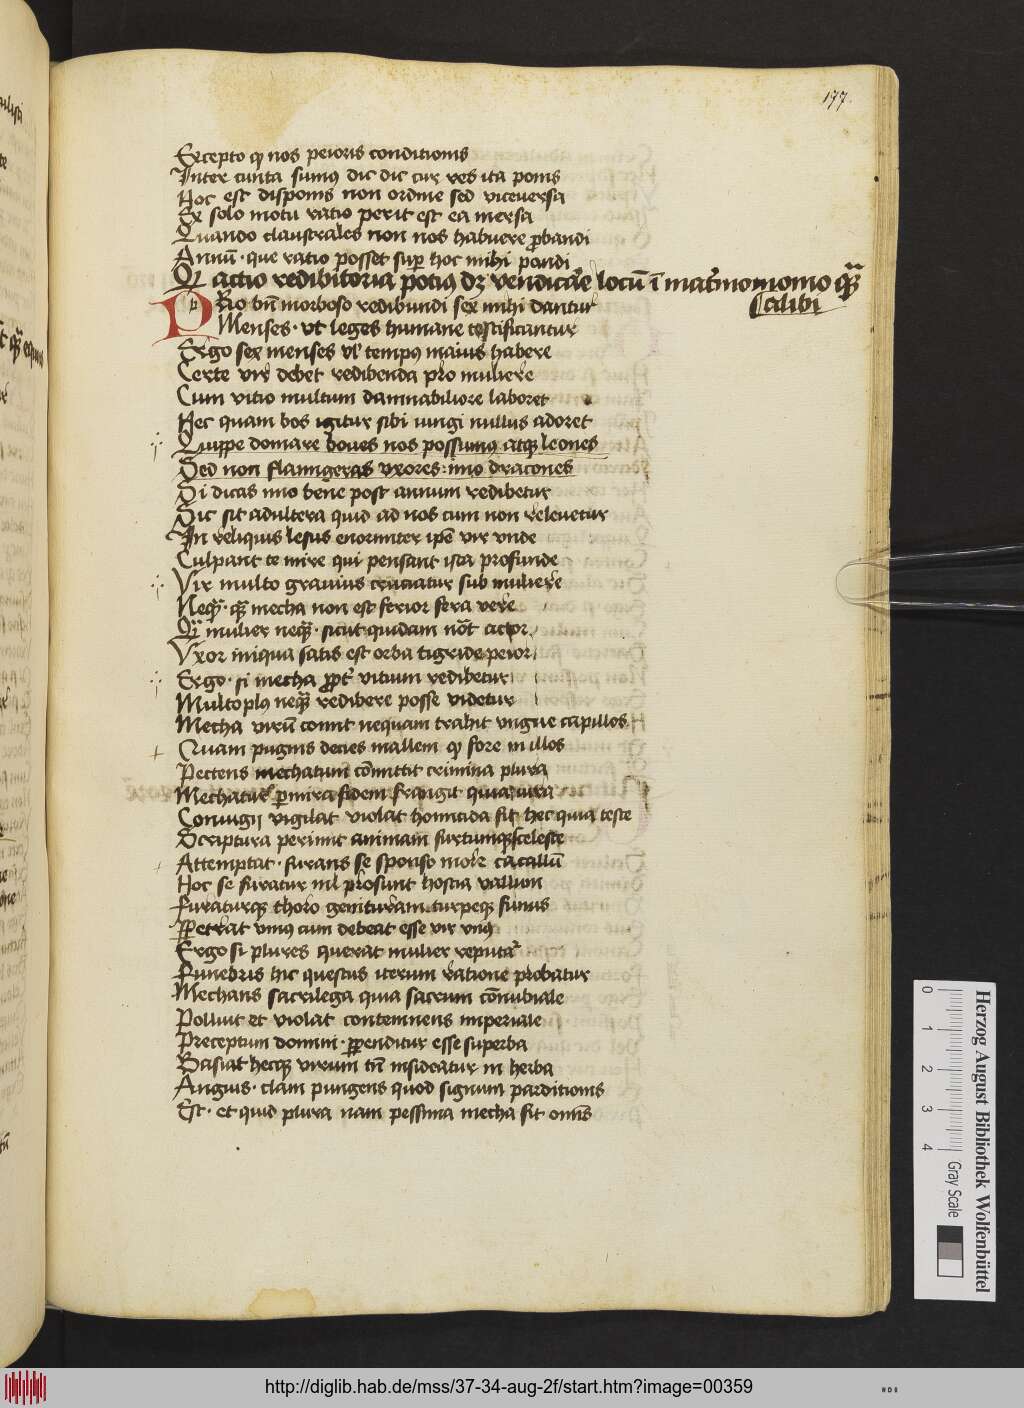 177.
Excepto ꝙ nos peioris conditionis
Inter cunta sumꝰ dic dic cur res ita ponis
Hoc est disponis non ordine sed viceversa
Ex solo motu ratio perit est ea mersa
Quando claustrales non nos habuere ꝓbandi
Annū · que ratio posset suꝑ hoc mihi pandi
actio redibitoria potiꝰ dꝫ locū ī
celibi
Rio bn̄ morboso redibundi sex mihi dantur
Menses · vt leges humane testificantur
Ergo sex menses vl tempꝰ maius habere
Certe vir debet redibenda pro muliere
Cum vitio multum damnabiliore laboret
Hec quam bos igitur sibi iungi nullus adoret
Quippe domare boues nos possumꝰ atqꝫ leones
Sed non flammigeras vxores: imo dracones
Si dicas imo bene post annum redibetur
Sic sit adultera quid ad nos cum non releuetur
In reliquis lesus enormiter ipē vir vnde
Culpant te mire qui pensant ista profunde
Vir multo grauius cruciatur sub muliere
Neqꝫ · mecha non est ferior fera vere
mulier neqꝫ · sicut quidam nōt actor
Vxor iniqua satis est orba tigride peior
Ergo · si mecha vitium redibetur
Multo plꝰ neqꝫ redibere posse videtur
Mecha virū comit nequam trahit vngue capillos
Quam pugnis decies mallem ꝙ fore in illos
Pectens mechatum cōmittit crimina plura
Mechatur ꝑmira fidem frangit quia iura
Coniugii vigilat violat homicida fit hec quia teste
Scriptura perimit animam furtumqꝫ sceleste
Attemptat · furans se sponso catallū
Hoc se furatur nil prosunt hostia vallum
Furaturqꝫ thoro genituram turpeqꝫ funus
Ꝑpetrat vniꝰ cum debeat esse vir vnꝰ
Ergo si plures querat mulier reputat
Funebris hic questus iterum ratione probatur
Mechans sacrilega quia sacrum cōnubiale
Polluit et violat contemnens imperiale
Preceptum domini · ꝑpenditur esse superba
Basiat hecqꝫ virum tn̄ insidiatur in herba
Anguis · clam pungens quod signum parditionis
Est · et quid plura nam pessima mecha fit omīs
Herzog August Bibliothek Wolfenbüttel
Gray Scale
0 1 2 3 4
http://diglib.hab.de/mss/37-34-aug-2f/start.htm?image=00359